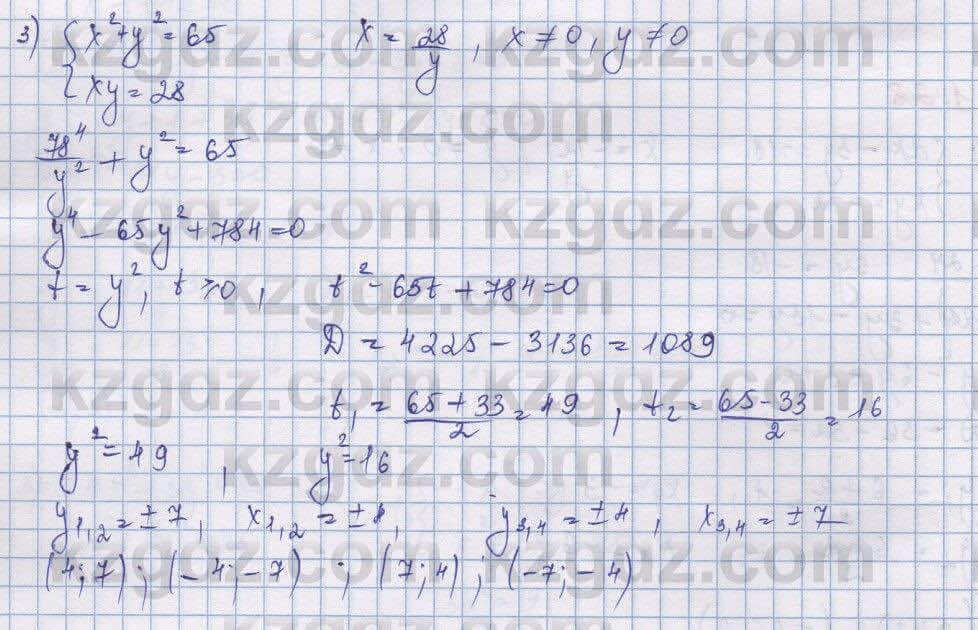 3) { x² + y² = 65   x = 28/y , x ≠ 0, y ≠ 0
{ xy = 28
78⁴/y² + y² = 65
y⁴ - 65y² + 784 = 0
t = y², t ≥ 0,   t² - 65t + 784 = 0
D = 4225 - 3136 = 1089
t₁ = (65 + 33)/2 = 49 , t₂ = (65 - 33)/2 = 16
y² = 49 , y² = 16
y₁,₂ = ± 7, x₁,₂ = ± 4, y₃,₄ = ± 4 , x₃,₄ = ± 7
(4; 7) ; (- 4; - 7) ; (7; 4) ; (-7; - 4)
kzgdz.com kzgdz.com
kzgdz.com kzgdz.com
kzgdz.com kzgdz.com
kzgdz.com kzgdz.com
kzgdz.com kzgdz.com
kzgdz.com kzgdz.com
kzgdz.com kzgdz.com